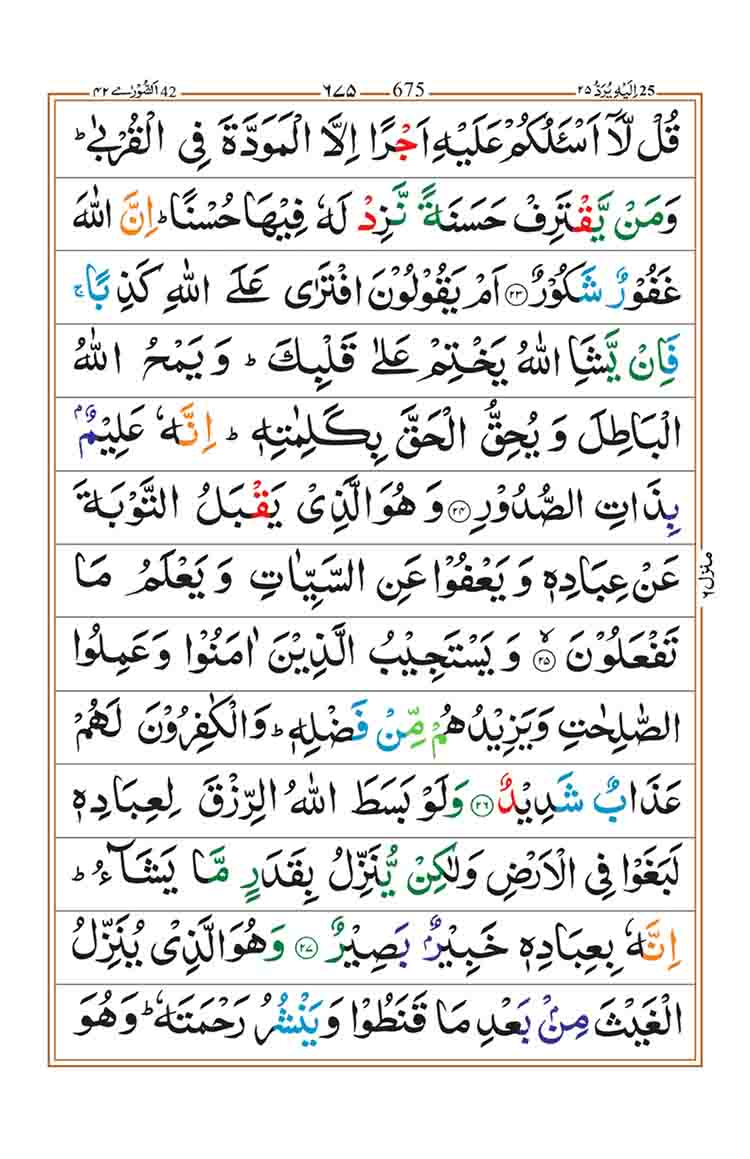 اَلشُّوْرٰے ٤٢ 42 ٦٧٥ 675 اِلَیْهِ یُرَدُّ ٢٥ 25
قُلْ لَّاۤ اَسْـَٔلُكُمْ عَلَیْهِ اَجْرًا اِلَّا الْمَوَدَّةَ فِی الْقُرْبٰیؕ
وَمَنْ یَّقْتَرِفْ حَسَنَةً نَّزِدْ لَهٗ فِیْهَا حُسْنًاؕ اِنَّ اللّٰهَ
غَفُوْرٌ شَكُوْرٌ ﴿٢٣﴾ اَمْ یَقُوْلُوْنَ افْتَرٰی عَلَی اللّٰهِ كَذِبًاۚ
فَاِنْ یَّشَاِ اللّٰهُ یَخْتِمْ عَلٰی قَلْبِكَؕ وَیَمْحُ اللّٰهُ
الْبَاطِلَ وَیُحِقُّ الْحَقَّ بِكَلِمٰتِهٖؕ اِنَّهٗ عَلِیْمٌۢ
بِذَاتِ الصُّدُوْرِ ﴿٢٤﴾ وَهُوَ الَّذِیْ یَقْبَلُ التَّوْبَةَ
عَنْ عِبَادِهٖ وَیَعْفُوْا عَنِ السَّیِّاٰتِ وَیَعْلَمُ مَا
تَفْعَلُوْنَ ﴿٢٥﴾ۙ وَیَسْتَجِیْبُ الَّذِیْنَ اٰمَنُوْا وَعَمِلُوا
الصّٰلِحٰتِ وَیَزِیْدُهُمْ مِّنْ فَضْلِهٖؕ وَالْكٰفِرُوْنَ لَهُمْ
عَذَابٌ شَدِیْدٌ ﴿٢٦﴾ وَلَوْ بَسَطَ اللّٰهُ الرِّزْقَ لِعِبَادِهٖ
لَبَغَوْا فِی الْاَرْضِ وَلٰكِنْ یُّنَزِّلُ بِقَدَرٍ مَّا یَشَآءُؕ
اِنَّهٗ بِعِبَادِهٖ خَبِیْرٌۢ بَصِیْرٌ ﴿٢٧﴾ وَهُوَ الَّذِیْ یُنَزِّلُ
الْغَیْثَ مِنْۢ بَعْدِ مَا قَنَطُوْا وَیَنْشُرُ رَحْمَتَهٗؕ وَهُوَ
منزل ٦